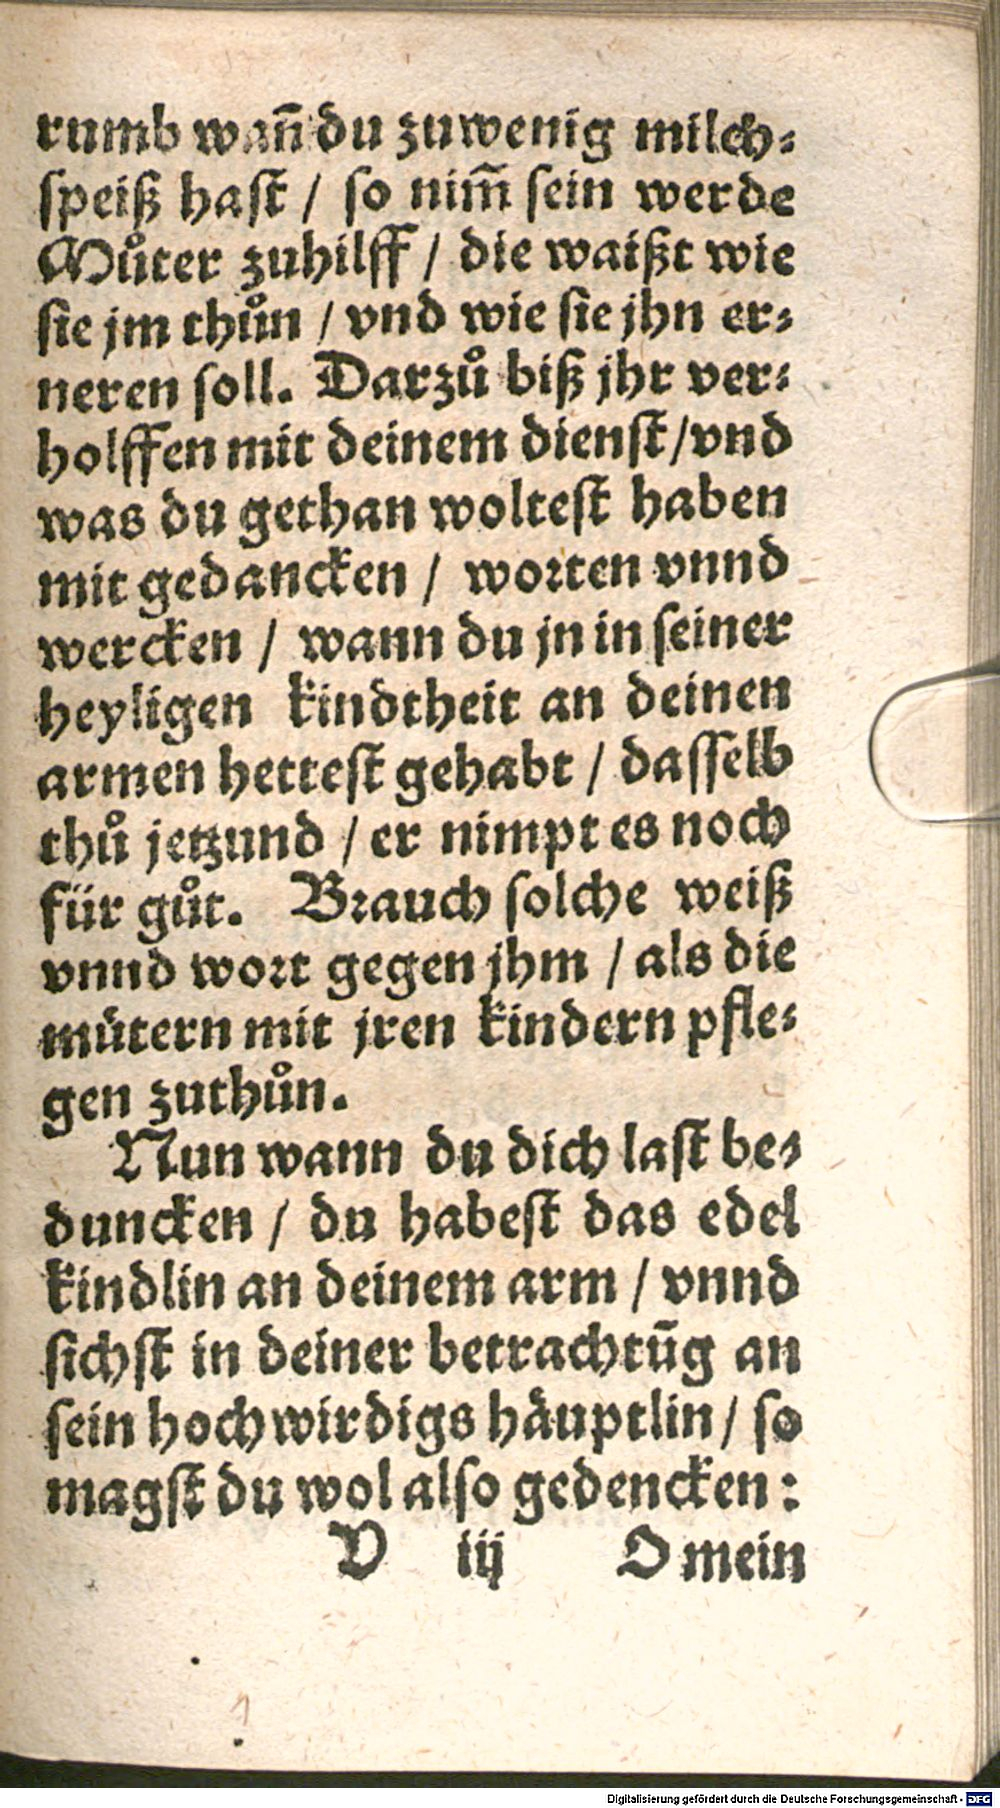 rumb wañ du zuwenig milch⸗
speiß hast / so nim̃ sein werde
Můter zuhilff / die waißt wie
sie jm thůn / vnd wie sie jhn er⸗
neren soll. Darzů biß jhr ver⸗
holffen mit deinem dienst/vnd
was du gethan woltest haben
mit gedancken / worten vnnd
wercken / wann du jn in seiner
heyligen kindtheit an deinen
armen hettest gehabt / dasselb
thů jetzund / er nimpt es noch
für gůt. Brauch solche weiß
vnnd wort gegen jhm / als die
mütern mit jren kindern pfle⸗
gen zuthůn.
Nun wann du dich last be⸗
duncken / du habest das edel
kindlin an deinem arm / vnnd
sichst in deiner betrachtũg an
sein hochwirdigs häuptlin / so
magst du wol also gedencken :
V iij O mein
Digitalisierung gefördert durch die Deutsche Forschungsgemeinschaft - DFG